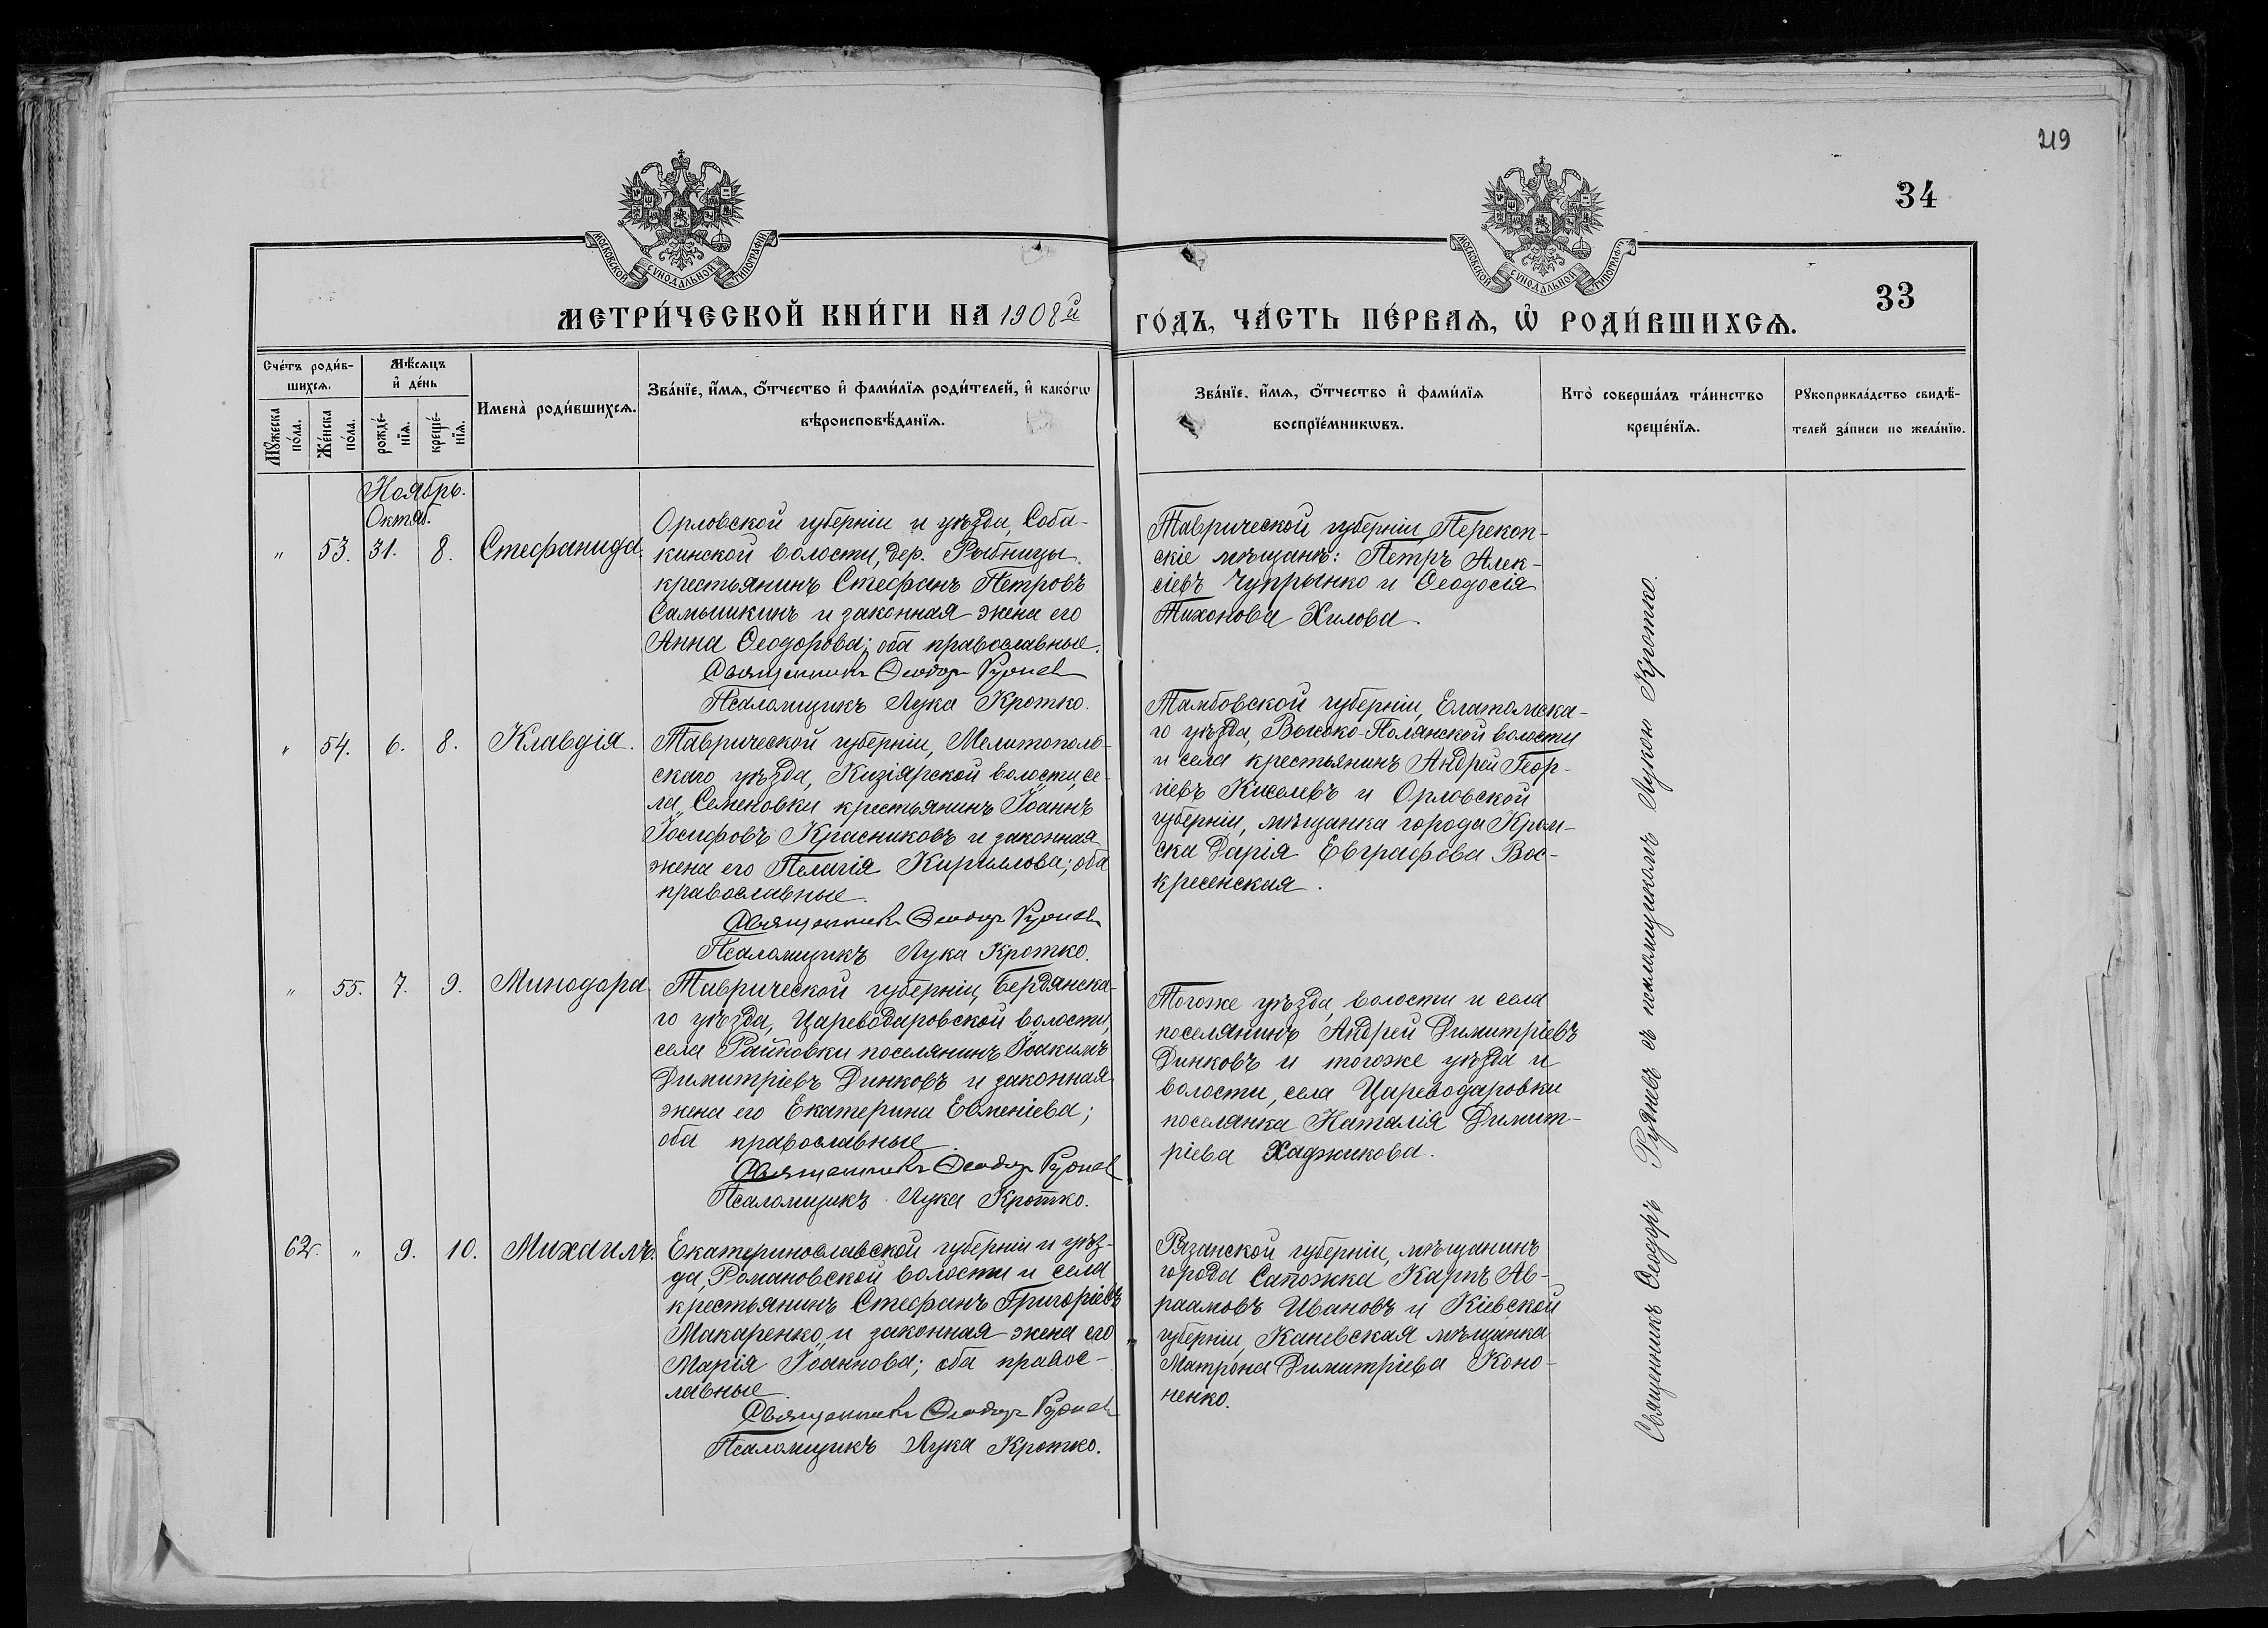 219
34
33
МОСКОВСКОЙ СѴНОДАЛЬНОЙ ТИПОГРАФІИ
МОСКОВСКОЙ СѴНОДАЛЬНОЙ ТИПОГРАФІИ
МЕТРИ́ЧЕСКОЙ КНИ́ГИ НА 1908й
ГО́ДЪ, ЧА́СТЬ ПЕ́РВАѦ, Ѡ҆ РОДИ́ВШИХСѦ.
Сче́тъ роди́в-
шихсѧ.
Мꙋ́жеска по́ла.
Же́нска по́ла.
Мѣ́сѧцъ
и҆ де́нь
рожде́-
нїѧ.
креще́-
нїѧ.
Имена̀ роди́вшихсѧ.
Зва́нїе, и҆́мѧ, ѻ҆́тчество и҆ фами́лїѧ роди́телей, и҆ како́гѡ
вѣроисповѣ́данїѧ.
Зва́нїе, и҆́мѧ, ѻ҆́тчество и҆ фами́лїѧ
воспрїе́мникѡвъ.
Кто̀ соверша́лъ та́инство
креще́нїѧ.
Рꙋкоприкла́дство свидѣ́-
телей за́писи по жела́нїю.
Ноябрь.
Октяб.
" 53. 31. 8. Стефанида.
Орловской губерніи и уѣзда, Соба-
кинской волости, дер. Рыбницы
крестьянинъ Стефанъ Петровъ
Самошкинъ и законная жена его
Анна Ѳеодорова; оба православные.
Священникъ Ѳеодоръ Руднев
Псаломщикъ Лука Кротко.
Таврической губерніи, Перекоп-
скіе мѣщане: Петръ Алек-
сіевъ Чупрынко и Ѳеодосія
Тихонова Хилова.
" 54. 6. 8. Клавдія.
Таврической губерніи, Мелитополь-
скаго уѣзда, Кизіярской волости, се-
ла Семеновки крестьянинъ Іоаннъ
Іосифовъ Красниковъ и законная
жена его Пелагія Кириллова; оба
православные.
Священникъ Ѳеодоръ
Псаломщикъ Лука Кротко.
Тамбовской губерніи, Елатомска-
го уѣзда, Высоко-Полянской волости
и села крестьянинъ Андрей Геор-
гіевъ Киселевъ и Орловской
губерніи, мѣщанка города Кром-
ска Дарія Евграфова Вос-
кресенская.
" 55. 7. 9. Минодора.
Таврической губерніи, Бердянска-
го уѣзда, Цареводаровской волости,
села Райновки поселянинъ Іоакимъ
Димитріевъ Динковъ и законная
жена его Екатерина Евменіева;
оба православные.
Священникъ Ѳеодоръ
Псаломщикъ Лука Кротко.
Тогоже уѣзда, волости и села
поселянинъ Андрей Димитріевъ
Динковъ и тогоже уѣзда и
волости, села Цареводаровки
поселянка Наталія Димит-
ріева Хаджикова.
62. " 9. 10. Михаилъ.
Екатеринославской губерніи и уѣз-
да, Романовской волости и села
крестьянинъ Стефанъ Григоріевъ
Макаренко и законная жена его
Марія Іоаннова; оба правос-
лавные.
Священникъ Ѳеодоръ
Псаломщикъ Лука Кротко.
Рязанской губерніи, мѣщанинъ
города Сапожка Карпъ Ав-
раамовъ Ивановъ и Кіевской
губерніи, Каневская мѣщанка
Матрона Димитріева Коно-
ненко.
Священникъ Ѳеодоръ съ псаломщикомъ Лукою Кротко.